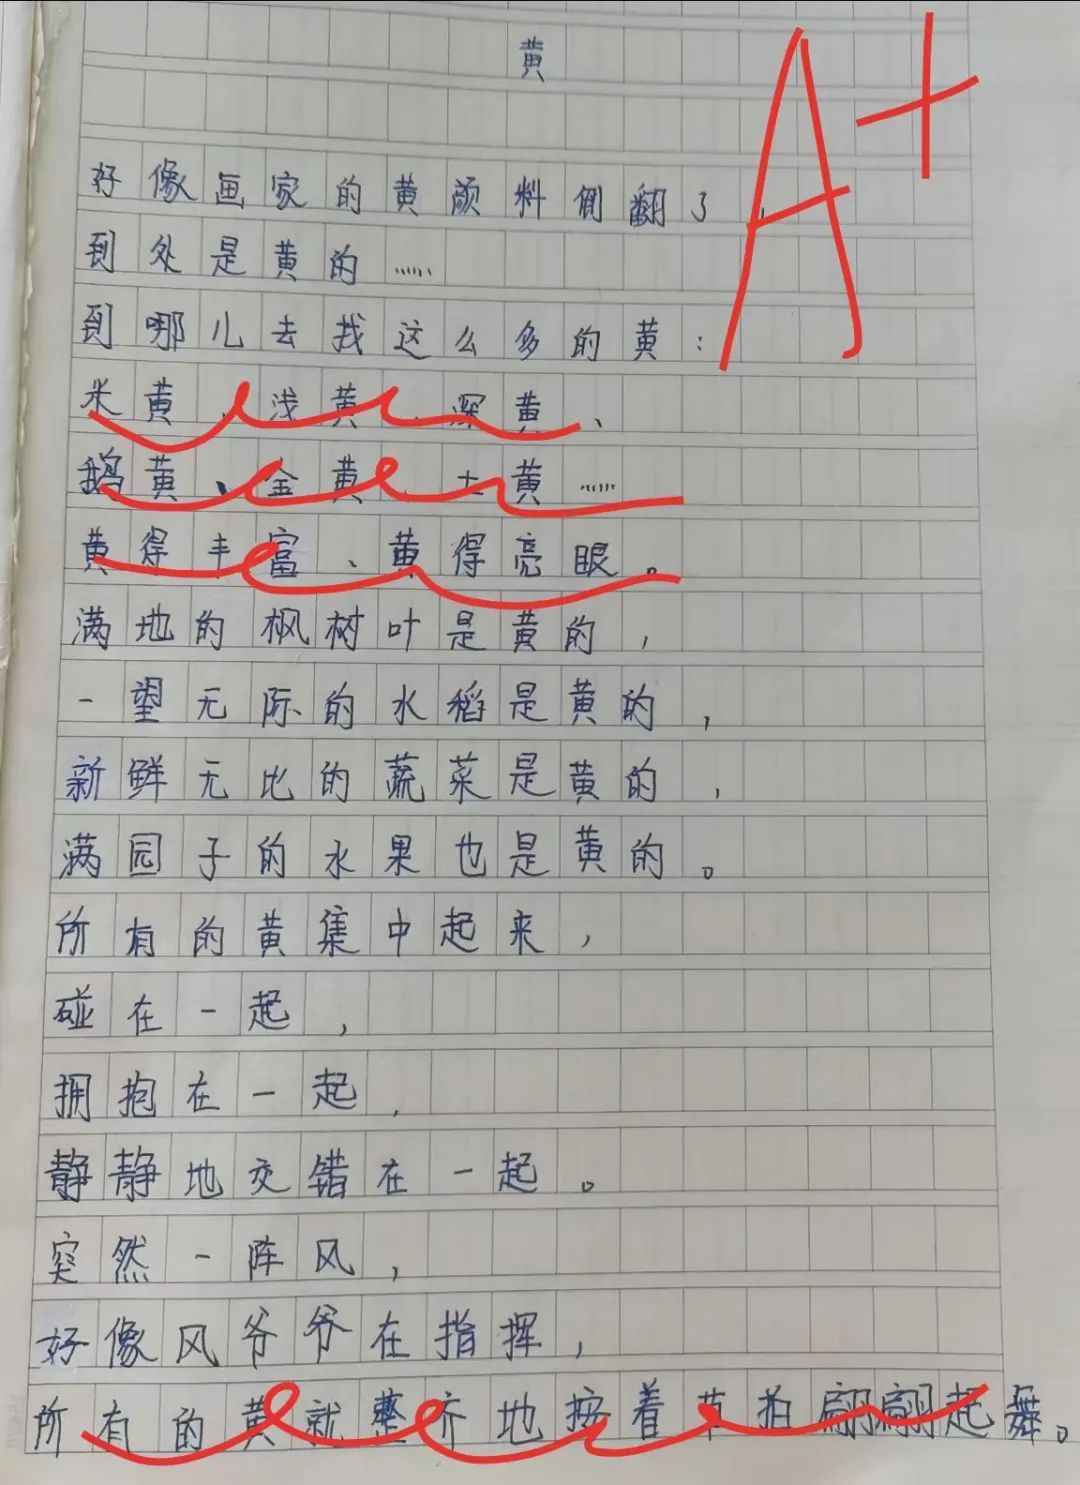 黄
A+
好像画家的黄颜料倒翻了，
到处是黄的……
到哪儿去找这么多的黄：
米黄、浅黄、深黄、
鹅黄、金黄、土黄……
黄得丰富、黄得亮眼。
满地的枫树叶是黄的，
一望无际的水稻是黄的，
新鲜无比的蔬菜是黄的，
满园子的水果也是黄的。
所有的黄集中起来，
碰在一起，
拥抱在一起，
静静地交错在一起。
突然一阵风，
好像风爷爷在指挥，
所有的黄就整齐地按着节拍翩翩起舞。